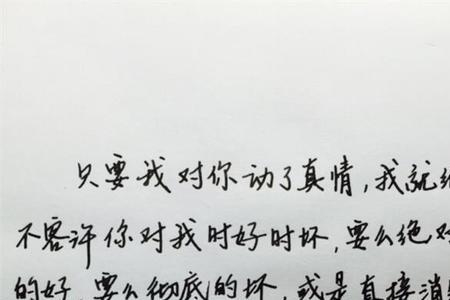 只要我对你动了真情，我就绝
不容许你对我时好时坏，要么绝对
的好，要么彻底的坏，或是直接消